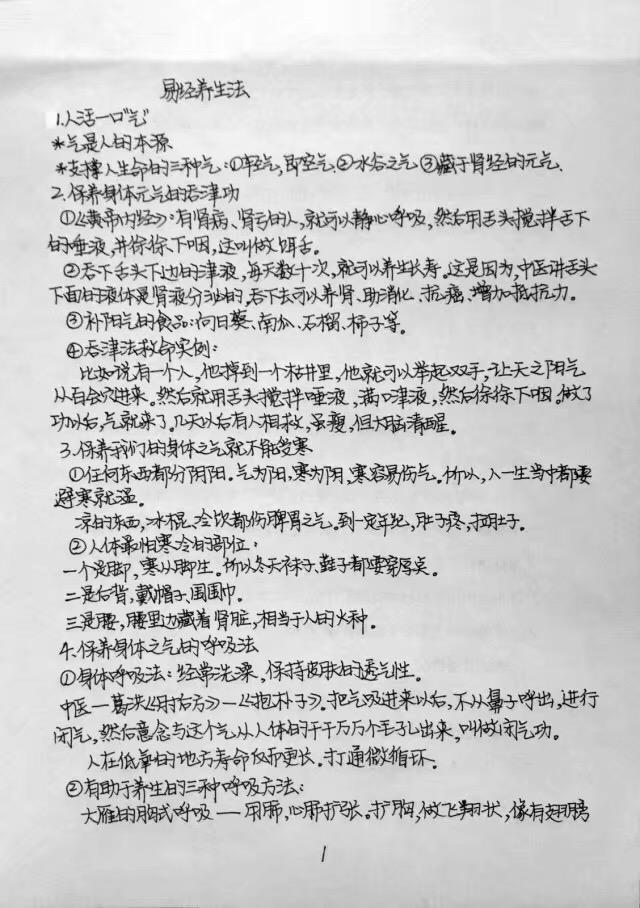 易经养生法
1.人活一口“气”
*气是人的本源
*支撑人生命的三种气:①轻气,即空气.②水谷之气 ③藏于肾经的元气.
2.保养身体元气的吞津功
①《黄帝内经》:有肾病、肾亏的人,就可以静心呼吸,然后用舌头搅拌舌下
的唾液,并徐徐下咽,这叫做饵舌。
②吞下舌头下边的津液,每天数十次,就可以养生长寿。这是因为,中医讲舌头
下面的液体是肾液分泌的,吞下去可以养肾、助消化、抗癌、增加抵抗力。
③补阳气的食品:向日葵、南瓜、石榴、柿子等。
④吞津法救命实例:
比如说有一个人,他掉到一个枯井里,他就可以举起双手,让天之阳气
从百会穴进来。然后就用舌头搅拌唾液,满口津液,然后徐徐下咽。做了
功以后,气就来了。几天以后有人相救,虽瘦,但大脑清醒。
3.保养我们的身体之气就不能受寒
①任何东西都分阴阳。气为阳,寒为阴,寒容易伤气。所以,人一生当中都要
避寒就温。
凉的东西,冰棍、冷饮都伤脾胃之气。到一定年纪,肚子疼,拉肚子。
②人体最怕寒冷的部位:
一个是脚,寒从脚生。所以冬天袜子、鞋子都要穿厚点。
二是后背,戴帽子、围围巾。
三是腰,腰里边藏着肾脏,相当于人的火种。
4.保养身体之气的呼吸法
①身体呼吸法:经常洗澡,保持皮肤的透气性。
中医一葛洪《肘后方》—《抱朴子》。把气吸进来以后,不从鼻子呼出,进行
闭气,然后意念与这个气从人体的千千万万个毛孔出来,叫做闭气功。
人在低氧的地方寿命反而更长。打通微循环。
②有助于养生的三种呼吸方法:
大雁的胸式呼吸——用肺,心肺扩张。扩胸,做飞翔状,像有翅膀
1